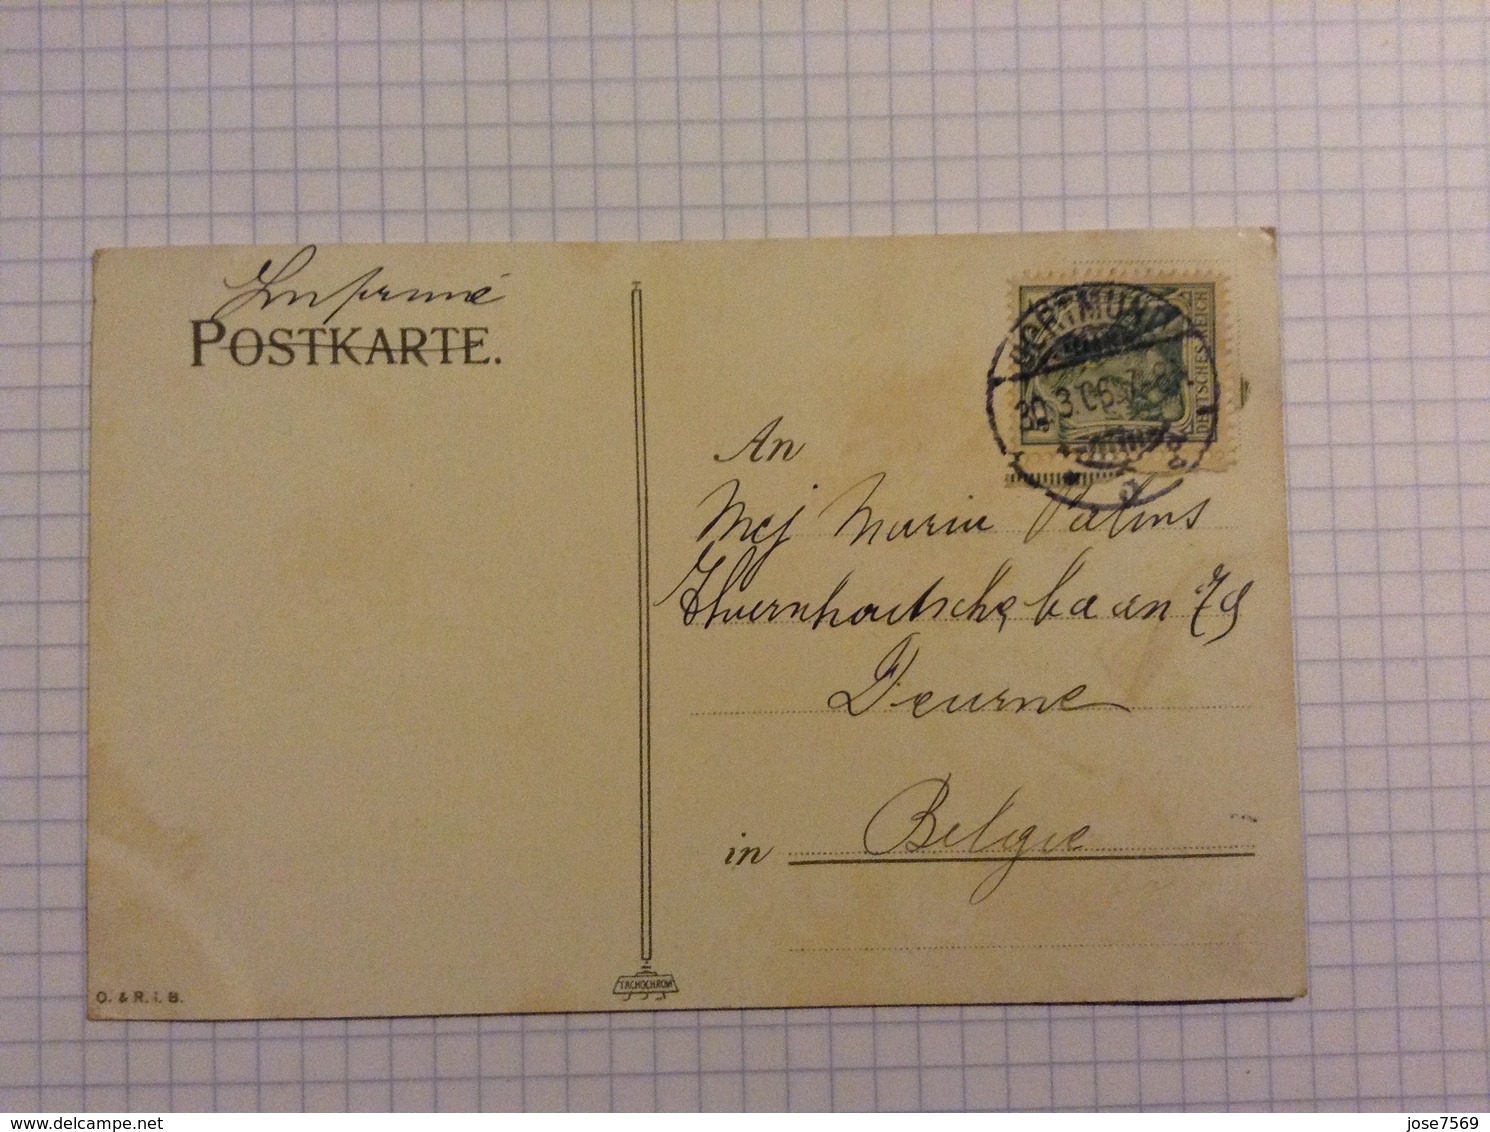 Imprimé
POSTKARTE.
DORTMUND
30.3.06.7-8
DEUTSCHES REICH
An
Mej Maria
Deurne
in Belgie
TACHOCHROM
O. & R. i. B.
www.delcampe.net
jose7569